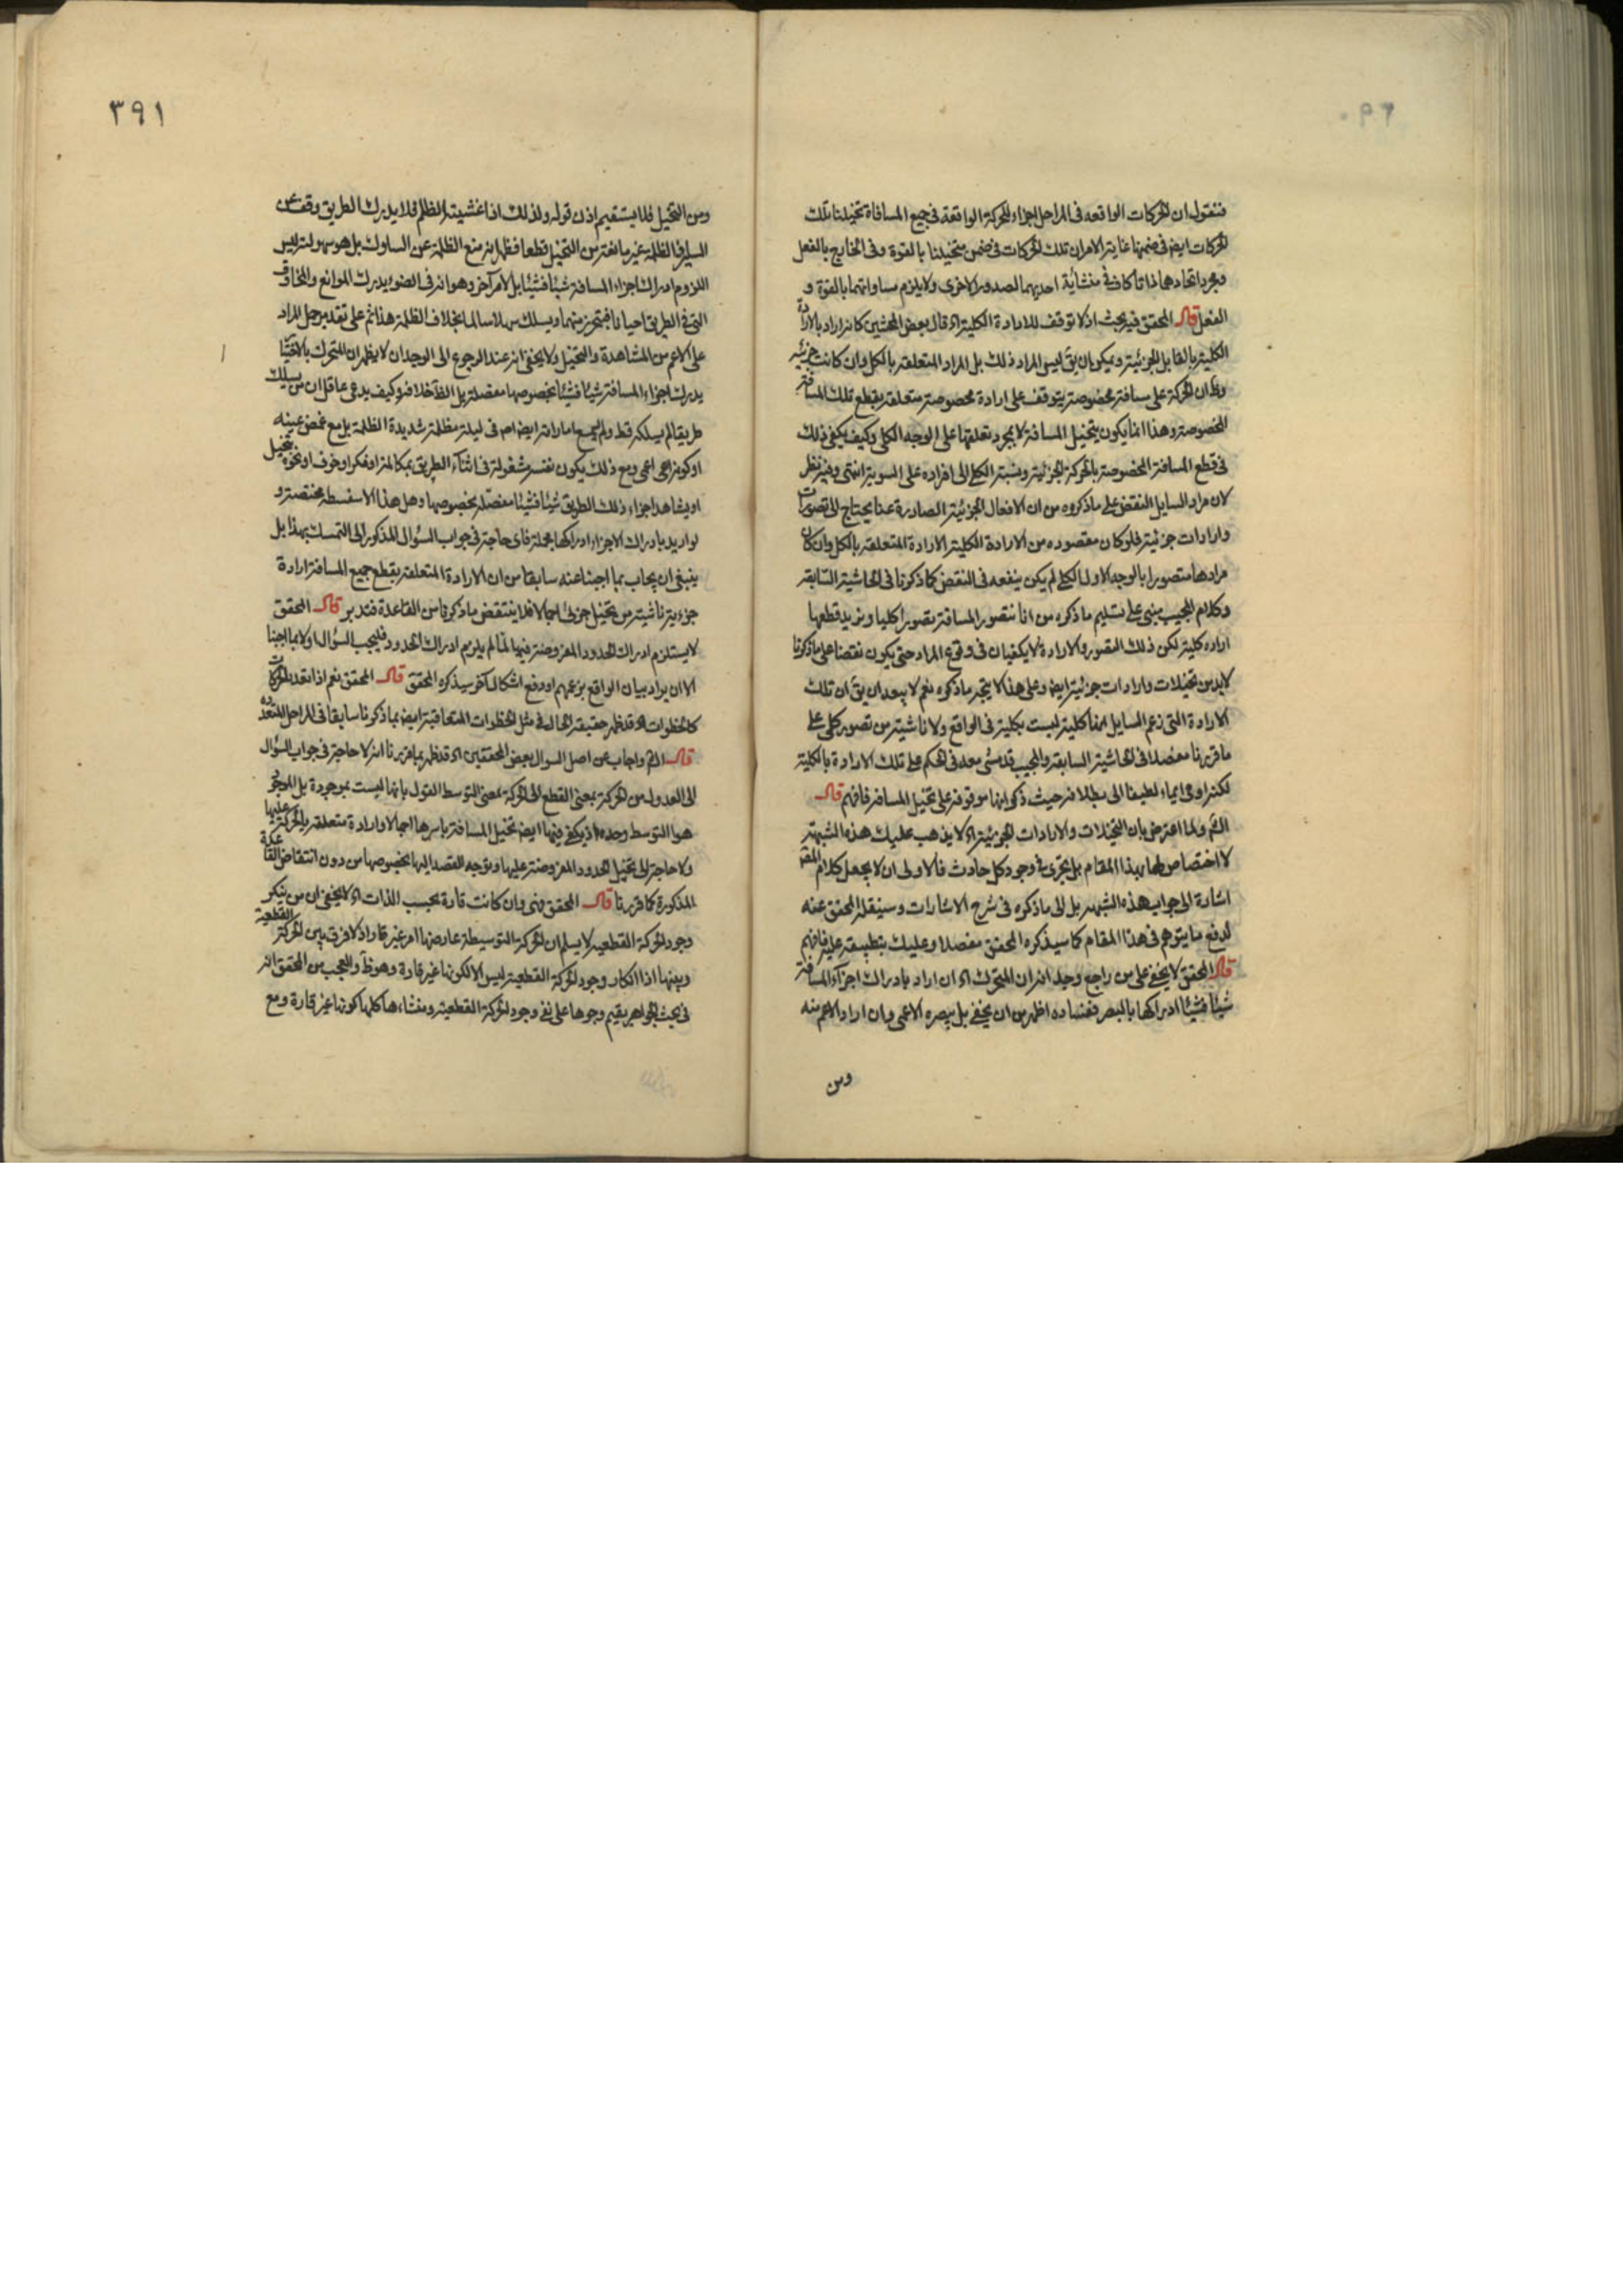 فنقول ان الحركات الواقعة فى المراحل اجزاء للحركة الواقعة فى جميع المسافة تخيلنا تلك
الحركات ايض فى ضمنها غاية الامر ان تلك الحركات فى ضمن متخيلنا بالقوة وفى الخارج بالفعل
ومجرد اتحادهما ذاتا كاف فى منشأية احديهما لصدور الاخرى ولا يلزم مساواتهما بالقوة و
الفعل قال المحقق فيه بحث اذ لا توقف للارادة الكلية اه قال بعض المحشين كانه اراد بالارادة
الكلية بالقابل للجزئية ويمكن ان يق ليس المراد ذلك بل المراد المتعلقة بالكل وان كانت جزئية
وظ ان الحركة على مسافة مخصوصة يتوقف على ارادة مخصوصة متعلقة بقطع تلك المسافة
المخصوصة وهذا انما يكون بتخيل المسافة لا بمجرد تعلقها على الوجه الكلى وكيف يكفى ذلك
فى قطع المسافة المخصوصة بالحركة الجزئية ونسبة الكلى الى افراده على السوية انتهى وفيه نظر
لان مراد السايل النقض على ما ذكروه من ان الافعال الجزئية الصادرة عنا يحتاج الى تصورات
وارادات جزئية فلو كان مقصوده من الارادة الكلية الارادة المتعلقة بالكل وان كان
مرادها متصورا بالوجه الاول الكلى لم يكن ينفعه فى النقض كما ذكرنا فى الحاشية السابقة
وكلام المجيب مبنى على تسليم ما ذكره من انا نتصور المسافة تصورا كليا ونريد قطعها
ارادة كلية لكن ذلك التصور والارادة لا يكفيان فى وقوع المراد حتى يكون نقضا على ما ذكرنا
لابد من تخيلات وارادات جزئية ايض وعلى هذا لا يتجه ما ذكره نعم لا يبعد ان يق ان تلك
الارادة التى زعم السايل انها كلية ليست بكلية فى الواقع ولا ناشية من تصور كلى على
ما قررنا مفصلا فى الحاشية السابقة والمجيب قد مشى معه فى الحكم على تلك الارادة بالكلية
لكنه اومى ايماء لطيفا الى بطلانه حيث ذكر انها موقوفة على تخيل المسافة فافهم قال
الش ولما اعترض بان التخيلات والارادات الجزئية اه لا يذهب عليك هذه الشبهة
لا اختصاص لها بهذا المقام بل يجرى فى وجود كل حادث فالاولى ان لا يجعل كلام المصّ
اشارة الى جواب هذه الشبهة بل الى ما ذكره فى شرح الاشارات وسينقله المحقق عنه
لدفع ما يتوهم فى هذا المقام كما سيذكره المحقق مفصلا وعليك بتطبيقه عليه فافهم
قال المحقق لا يخفى على من راجع وجدانه ان المتحرك اه ان اراد بادراك اجزاء المسافة
شيئا فشيئا ادراكها بالبصر ففساده اظهر من ان يخفى بل يبصره الاعمى وان اراد الاعم منه
ومن
٣٩١
ومن التخيل فلا يستقيم اذن قوله ولذلك اذا غشيته الظلم فلا يدرك الطريق وقف عن
السير فالظلمة غير مانعة من التخيل قطعا فظهر انه منع الظلمة عن السلوك بل هو سهولته ليس
للزوم ادراك اجزاء المسافة شيئا فشيئا بل لامر آخر وهو انه فى الضوء يدرك الموانع والمخاوف
التى فى الطريق احيانا فيتحرز منها ويسلك سهلا سالما بخلاف الظلمة هذا ثم على تقدير حمل المراد
على الاعم من المشاهدة والتخيل ولا يخفى انه عند الرجوع الى الوجدان لا يظهر ان للمتحرك
يدرك اجزاء المسافة شيئا فشيئا بخصوصها مفصلة بل الظ خلافه وكيف يدعى عاقل ان من يسلك
طريقا لم يسلكه قط ولم يسمع اماراته ايض اصم فى ليلة مظلمة شديدة الظلمة بل مع غمض عينه
او كونه اعمى ومع ذلك يكون نفسه مشغولة فى اثناء الطريق بمكالمة او فكر او خوف او نحوه يتخيل
او يشاهد اجزاء ذلك الطريق شيئا فشيئا مفصلة بخصوصها وهل هذا الا سفسطة محضة و
لو اريد بادراك الاجزاء ادراكها مجملة فاى حاجة فى جواب السؤال المذكور الى التمسك بهذا بل
ينبغى ان يجاب بما اجبنا عنه سابقا من ان الارادة المتعلقة بقطع جميع المسافة ارادة
جزءية ناشية من تخيل جزئى اجمالا فلا ينتقض ما ذكرنا من القاعدة فتدبر قال المحقق
لا يستلزم ادراك الحدود المفروضة فيها لما لم يلزم ادراك الحدود فليجب السؤال اولا بما اجبنا
الا ان يراد بيان الواقع بزعمهم او دفع اشكال آخر سيذكره المحقق قال المحقق نعم اذا تعدد الحركات
كالخطوات اه قد ظهر حقيقة الحال فى مثل الخطوات المتعاقبة ايض بما ذكرنا سابقا فى المراحل المتعددة
قال الش واجاب عن اصل السوال بعض المحققين اه قد ظهر بما قررنا انه لا حاجة فى جواب السؤال
الى العدول من الحركة بمعنى القطع الى الحركة بمعنى التوسط القول بانها ليست بموجودة بل الموجود
هو التوسط وحده اذ يكفى فيها ايض تخيل المسافة باسرها اجمالا وارادة متعلقة بالحركة عليها
ولا حاجة الى تخيل الحدود المفروضة عليها وتوجه القصد اليها بخصوصها من دون انتقاض القاعدة
المذكورة كما قررنا قال المحقق وهى وان كانت قارة بحسب الذات اه لا يخفى ان من ينكر
وجود الحركة القطعية لا يسلم ان الحركة التوسيطة عارضها امر غير قار اذ لا فرق بين الحركة القطعية
وبينها اذا انكار وجود الحركة القطعية ليس الا لكونها غير قارة وهو ظ والعجب من المحقق انه
فى بحث الجواهر يقيم وجوها على نفى وجود الحركة القطعية ومنشاءها كلها كونها غير قارة ومع